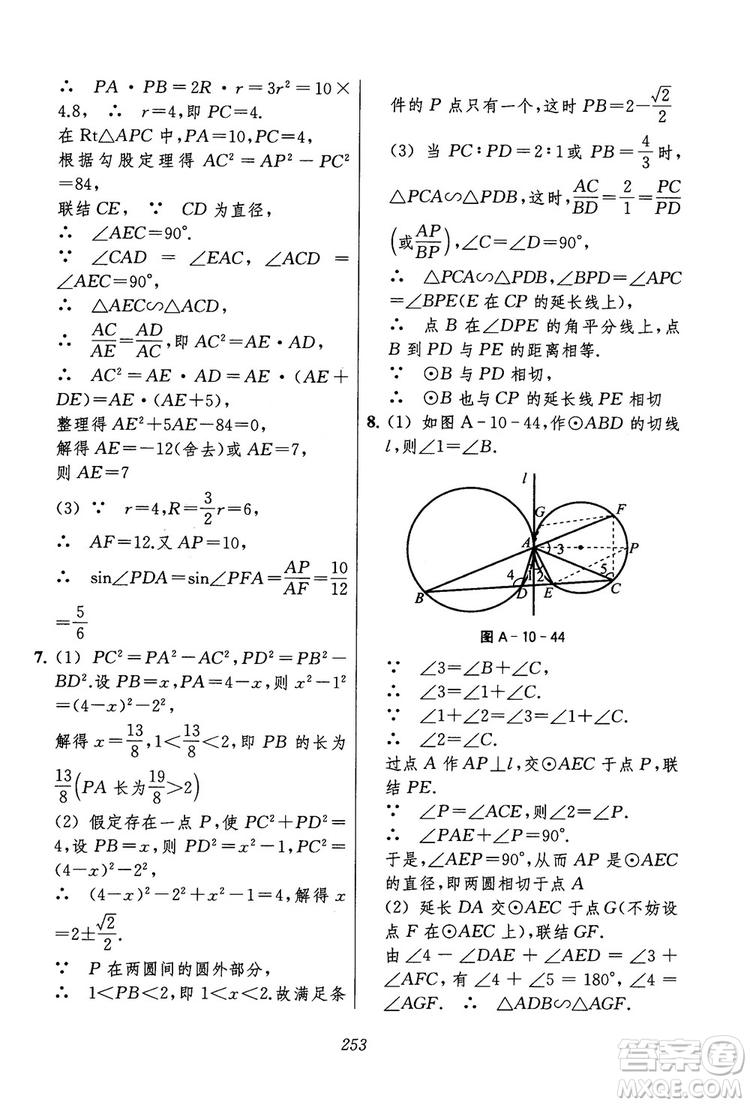 ∴ PA·PB=2R·r=3r²=10×
4.8, ∴ r=4,即 PC=4.
在 Rt△APC 中,PA=10,PC=4,
根据勾股定理得 AC²=AP²-PC²
=84,
联结 CE, ∵ CD 为直径,
∴ ∠AEC=90°.
∵ ∠CAD = ∠EAC, ∠ACD =
∠AEC=90°
∴ △AEC∽△ACD,
∴ AC/AE=AD/AC,即 AC²=AE·AD,
∴ AC²=AE·AD=AE·(AE+
DE)=AE·(AE+5),
整理得 AE²+5AE-84=0,
解得 AE=-12(舍去)或 AE=7,
则 AE=7
(3) ∵ r=4,R=3/2r=6,
∴ AF=12.又 AP=10,
∴ sin∠PDA=sin∠PFA=AP/AF=10/12
=5/6
7. (1) PC²=PA²-AC²,PD²=PB²-
BD².设 PB=x,PA=4-x,则 x²-1²
=(4-x)²-2²,
解得 x=13/8,1<13/8<2,即 PB 的长为
13/8(PA 长为19/8>2)
(2) 假定存在一点 P,使 PC²+PD²=
4,设 PB=x,则 PD²=x²-1,PC²=
(4-x)²-2²,
∴ (4-x)²-2²+x²-1=4,解得 x
=2±√2/2.
∵ P 在两圆间的圆外部分,
∴ 1<PB<2,即 1<x<2.故满足条
件的 P 点只有一个,这时 PB=2-√2/2
(3) 当 PC∶PD=2∶1或 PB=4/3时,
△PCA∽△PDB,这时,AC/BD=2/1=PC/PD
(或AP/BP),∠C=∠D=90°,
∴ △PCA∽△PDB,∠BPD=∠APC
=∠BPE(E 在 CP 的延长线上),
∴ 点 B 在∠DPE 的角平分线上,点
B 到 PD 与 PE 的距离相等.
∵ ⊙B 与 PD 相切,
∴ ⊙B 也与 CP 的延长线 PE 相切
8. (1) 如图 A-10-44,作⊙ABD 的切线
l,则∠1=∠B.
l
G
F
A
3
P
4
1
2
5
B
D
E
C
图 A-10-44
∵ ∠3=∠B+∠C,
∴ ∠3=∠1+∠C.
∵ ∠1+∠2=∠3=∠1+∠C.
∴ ∠2=∠C.
过点 A 作 AP⊥l,交⊙AEC 于点 P,联
结 PE.
∵ ∠P=∠ACE,则∠2=∠P.
∴ ∠PAE+∠P=90°.
于是,∠AEP=90°,从而 AP 是⊙AEC
的直径,即两圆相切于点 A
(2) 延长 DA 交⊙AEC 于点 G(不妨设
点 F 在⊙AEC 上),联结 GF.
由∠4 = ∠DAE + ∠AED = ∠3 +
∠AFC, 有 ∠4 + ∠5 = 180°, ∠4 =
∠AGF. ∴ △ADB∽△AGF.
253
答案圈
MXQE.COM